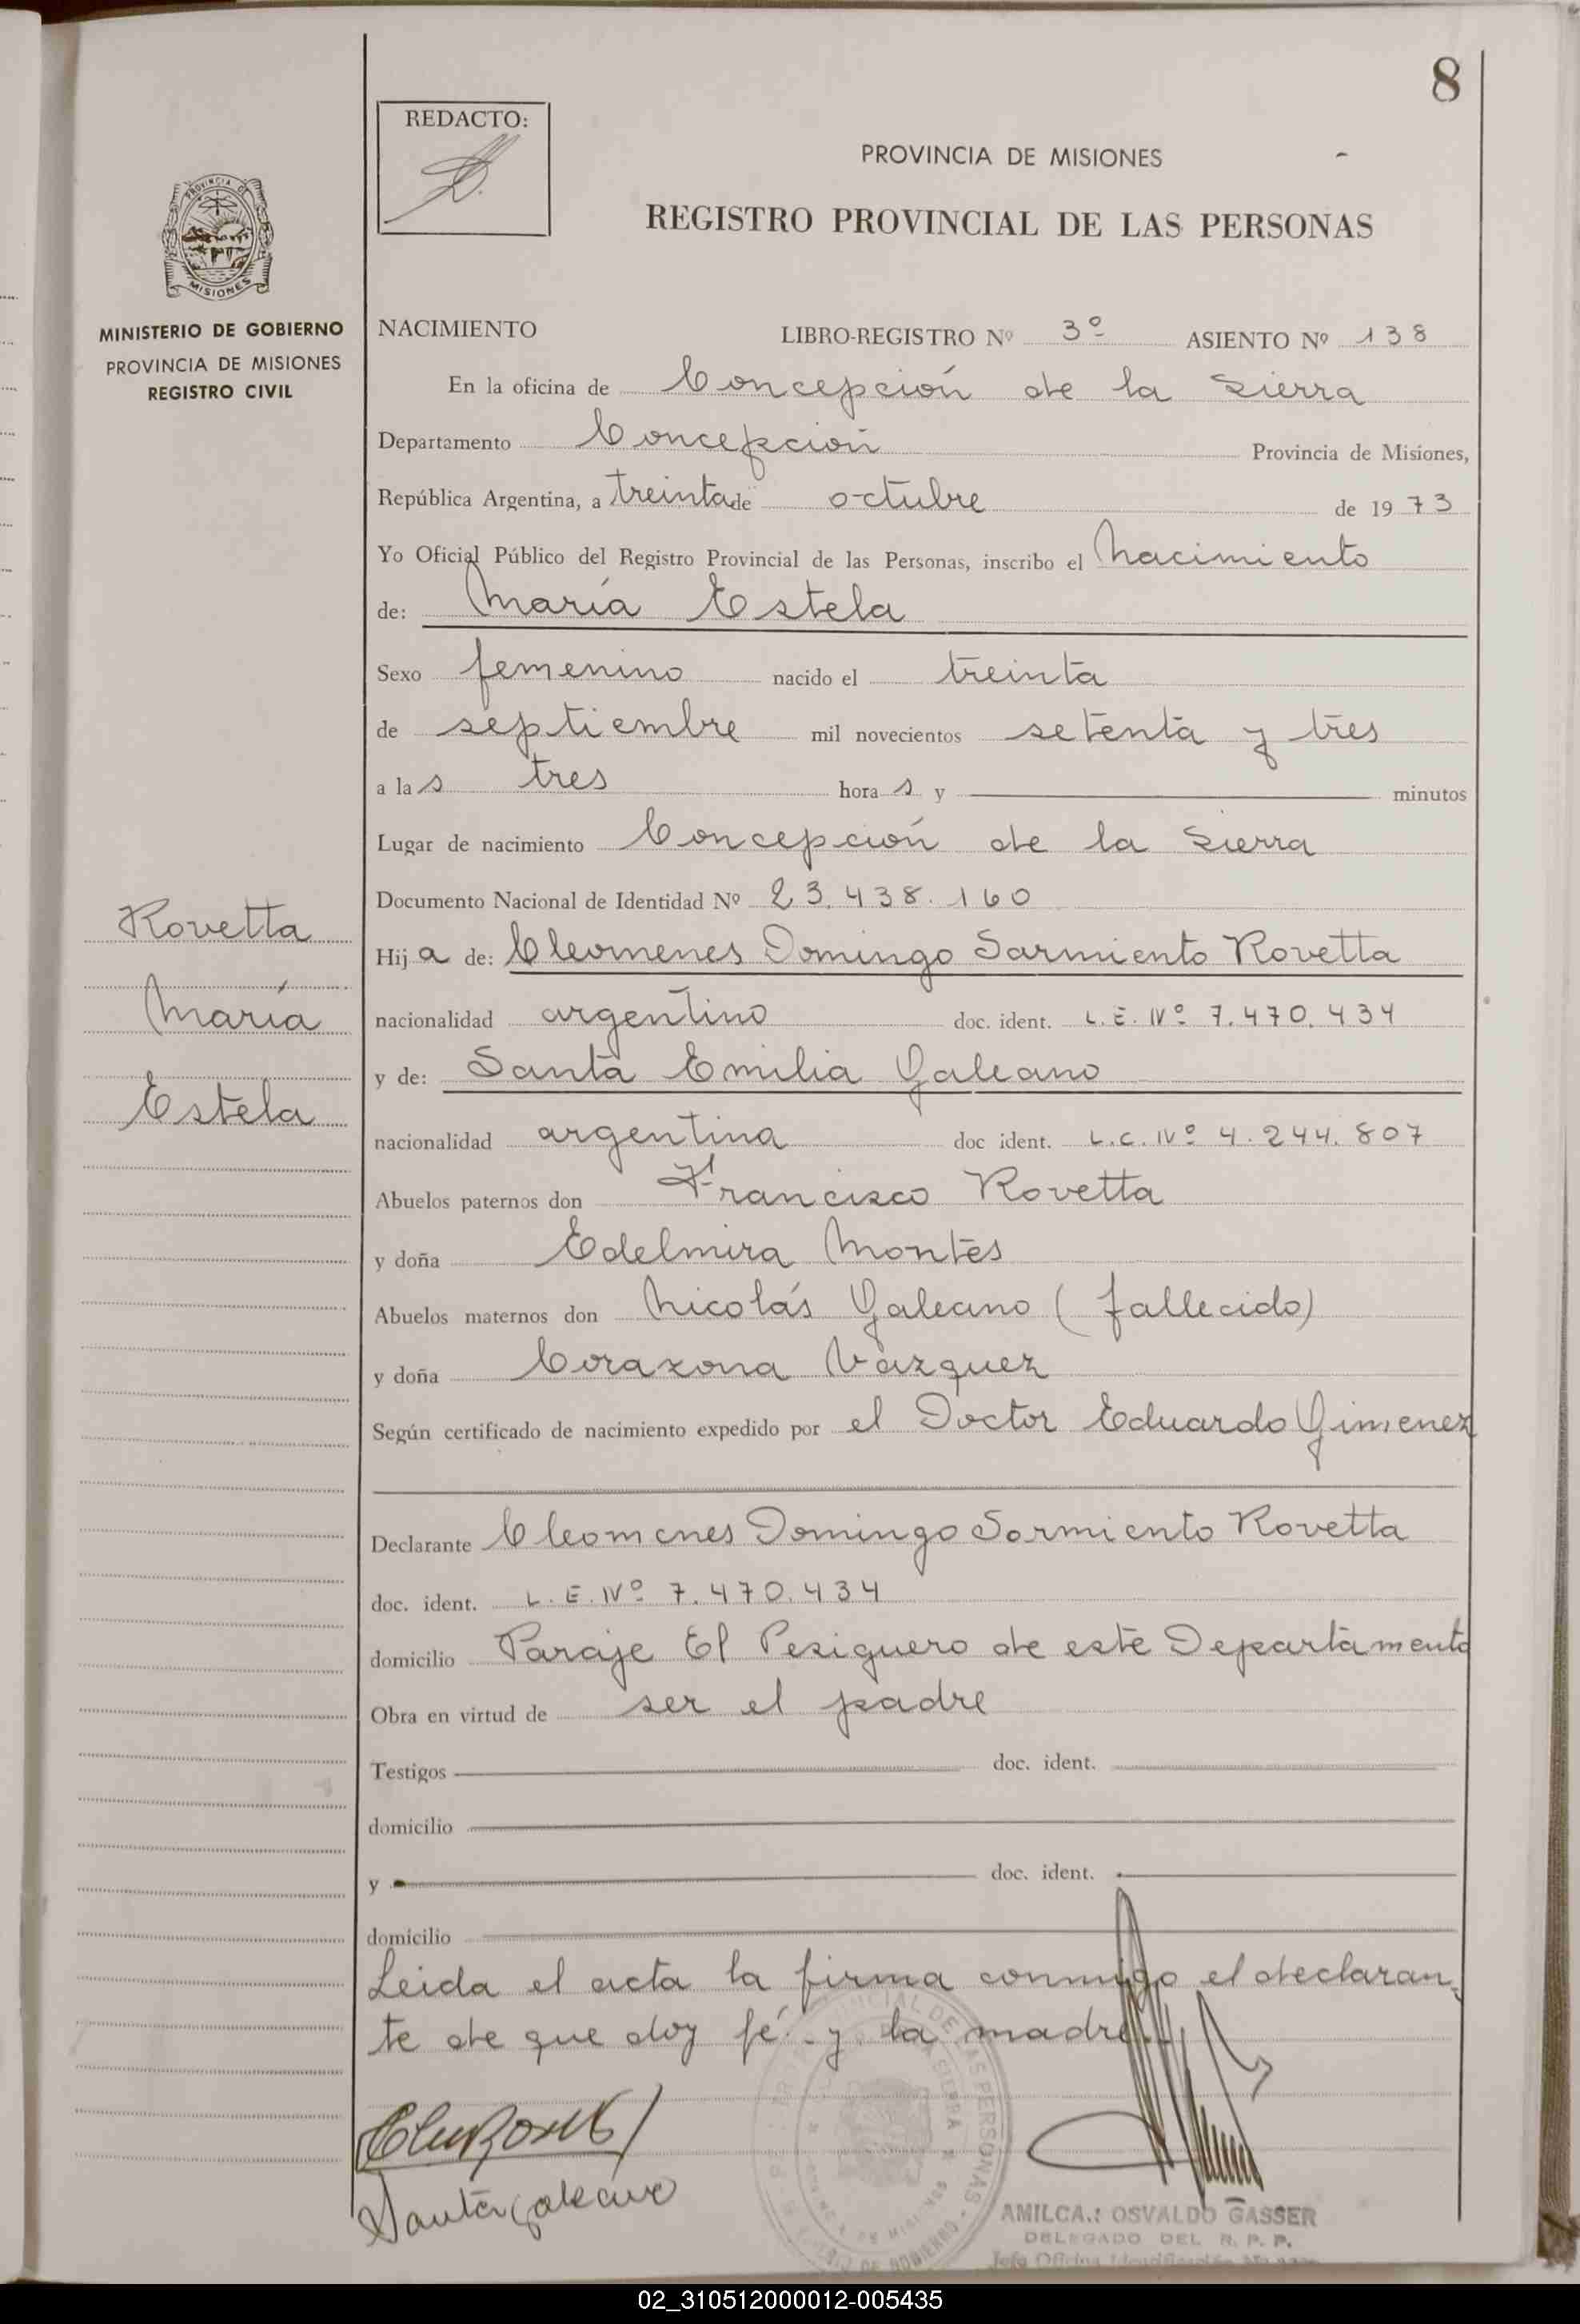 8
REDACTO:
PROVINCIA DE MISIONES
REGISTRO PROVINCIAL DE LAS PERSONAS
PROVINCIA DE
MISIONES
MINISTERIO DE GOBIERNO
PROVINCIA DE MISIONES
REGISTRO CIVIL
NACIMIENTO LIBRO-REGISTRO Nº 3º ASIENTO Nº 138
En la oficina de Concepción de la Sierra
Departamento Concepción Provincia de Misiones,
República Argentina, a treinta de octubre de 1973
Yo Oficial Público del Registro Provincial de las Personas, inscribo el Nacimiento
de: María Estela
Sexo femenino nacido el treinta
de septiembre mil novecientos setenta y tres
a las tres horas y minutos
Lugar de nacimiento Concepción de la Sierra
Documento Nacional de Identidad Nº 23.438.160
Rovetta
María
Estela
Hija de: Cleomenes Domingo Sarmiento Rovetta
nacionalidad argentino doc. ident. L.E. Nº 7.470.434
y de: Santa Emilia Galeano
nacionalidad argentina doc ident. L.C. Nº 4.244.807
Abuelos paternos don Francisco Rovetta
y doña Edelmira Montes
Abuelos maternos don Nicolás Galeano (fallecido)
y doña Corazona Vazquez
Según certificado de nacimiento expedido por el Doctor Eduardo Gimenez
Declarante Cleomenes Domingo Sarmiento Rovetta
doc. ident. L.E. Nº 7.470.434
domicilio Paraje El Persiguero de este Departamento
Obra en virtud de ser el padre
Testigos doc. ident.
domicilio
y doc. ident.
domicilio
Leida el acta la firma conmigo el declaran
te de que doy fé.- y la madre.-
Santa Galeano
AMILCA.: OSVALDO GASSER
DELEGADO DEL R. P. P.
02_310512000012-005435